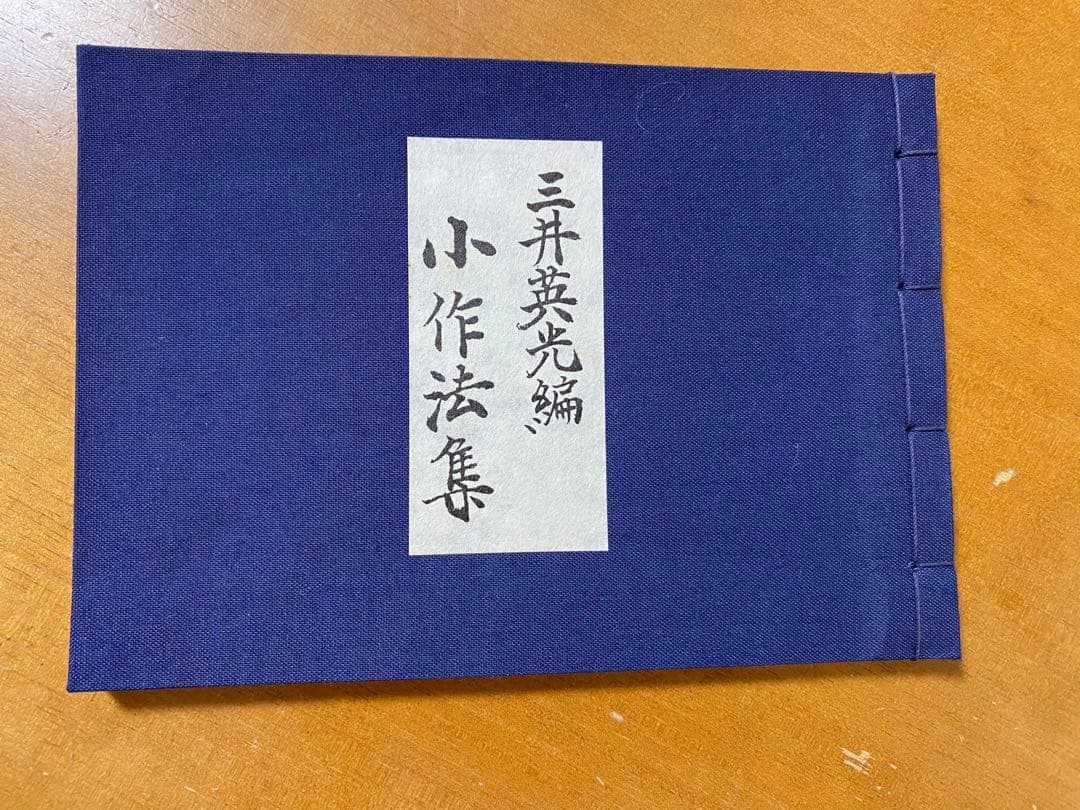 三井英光編
小作法集